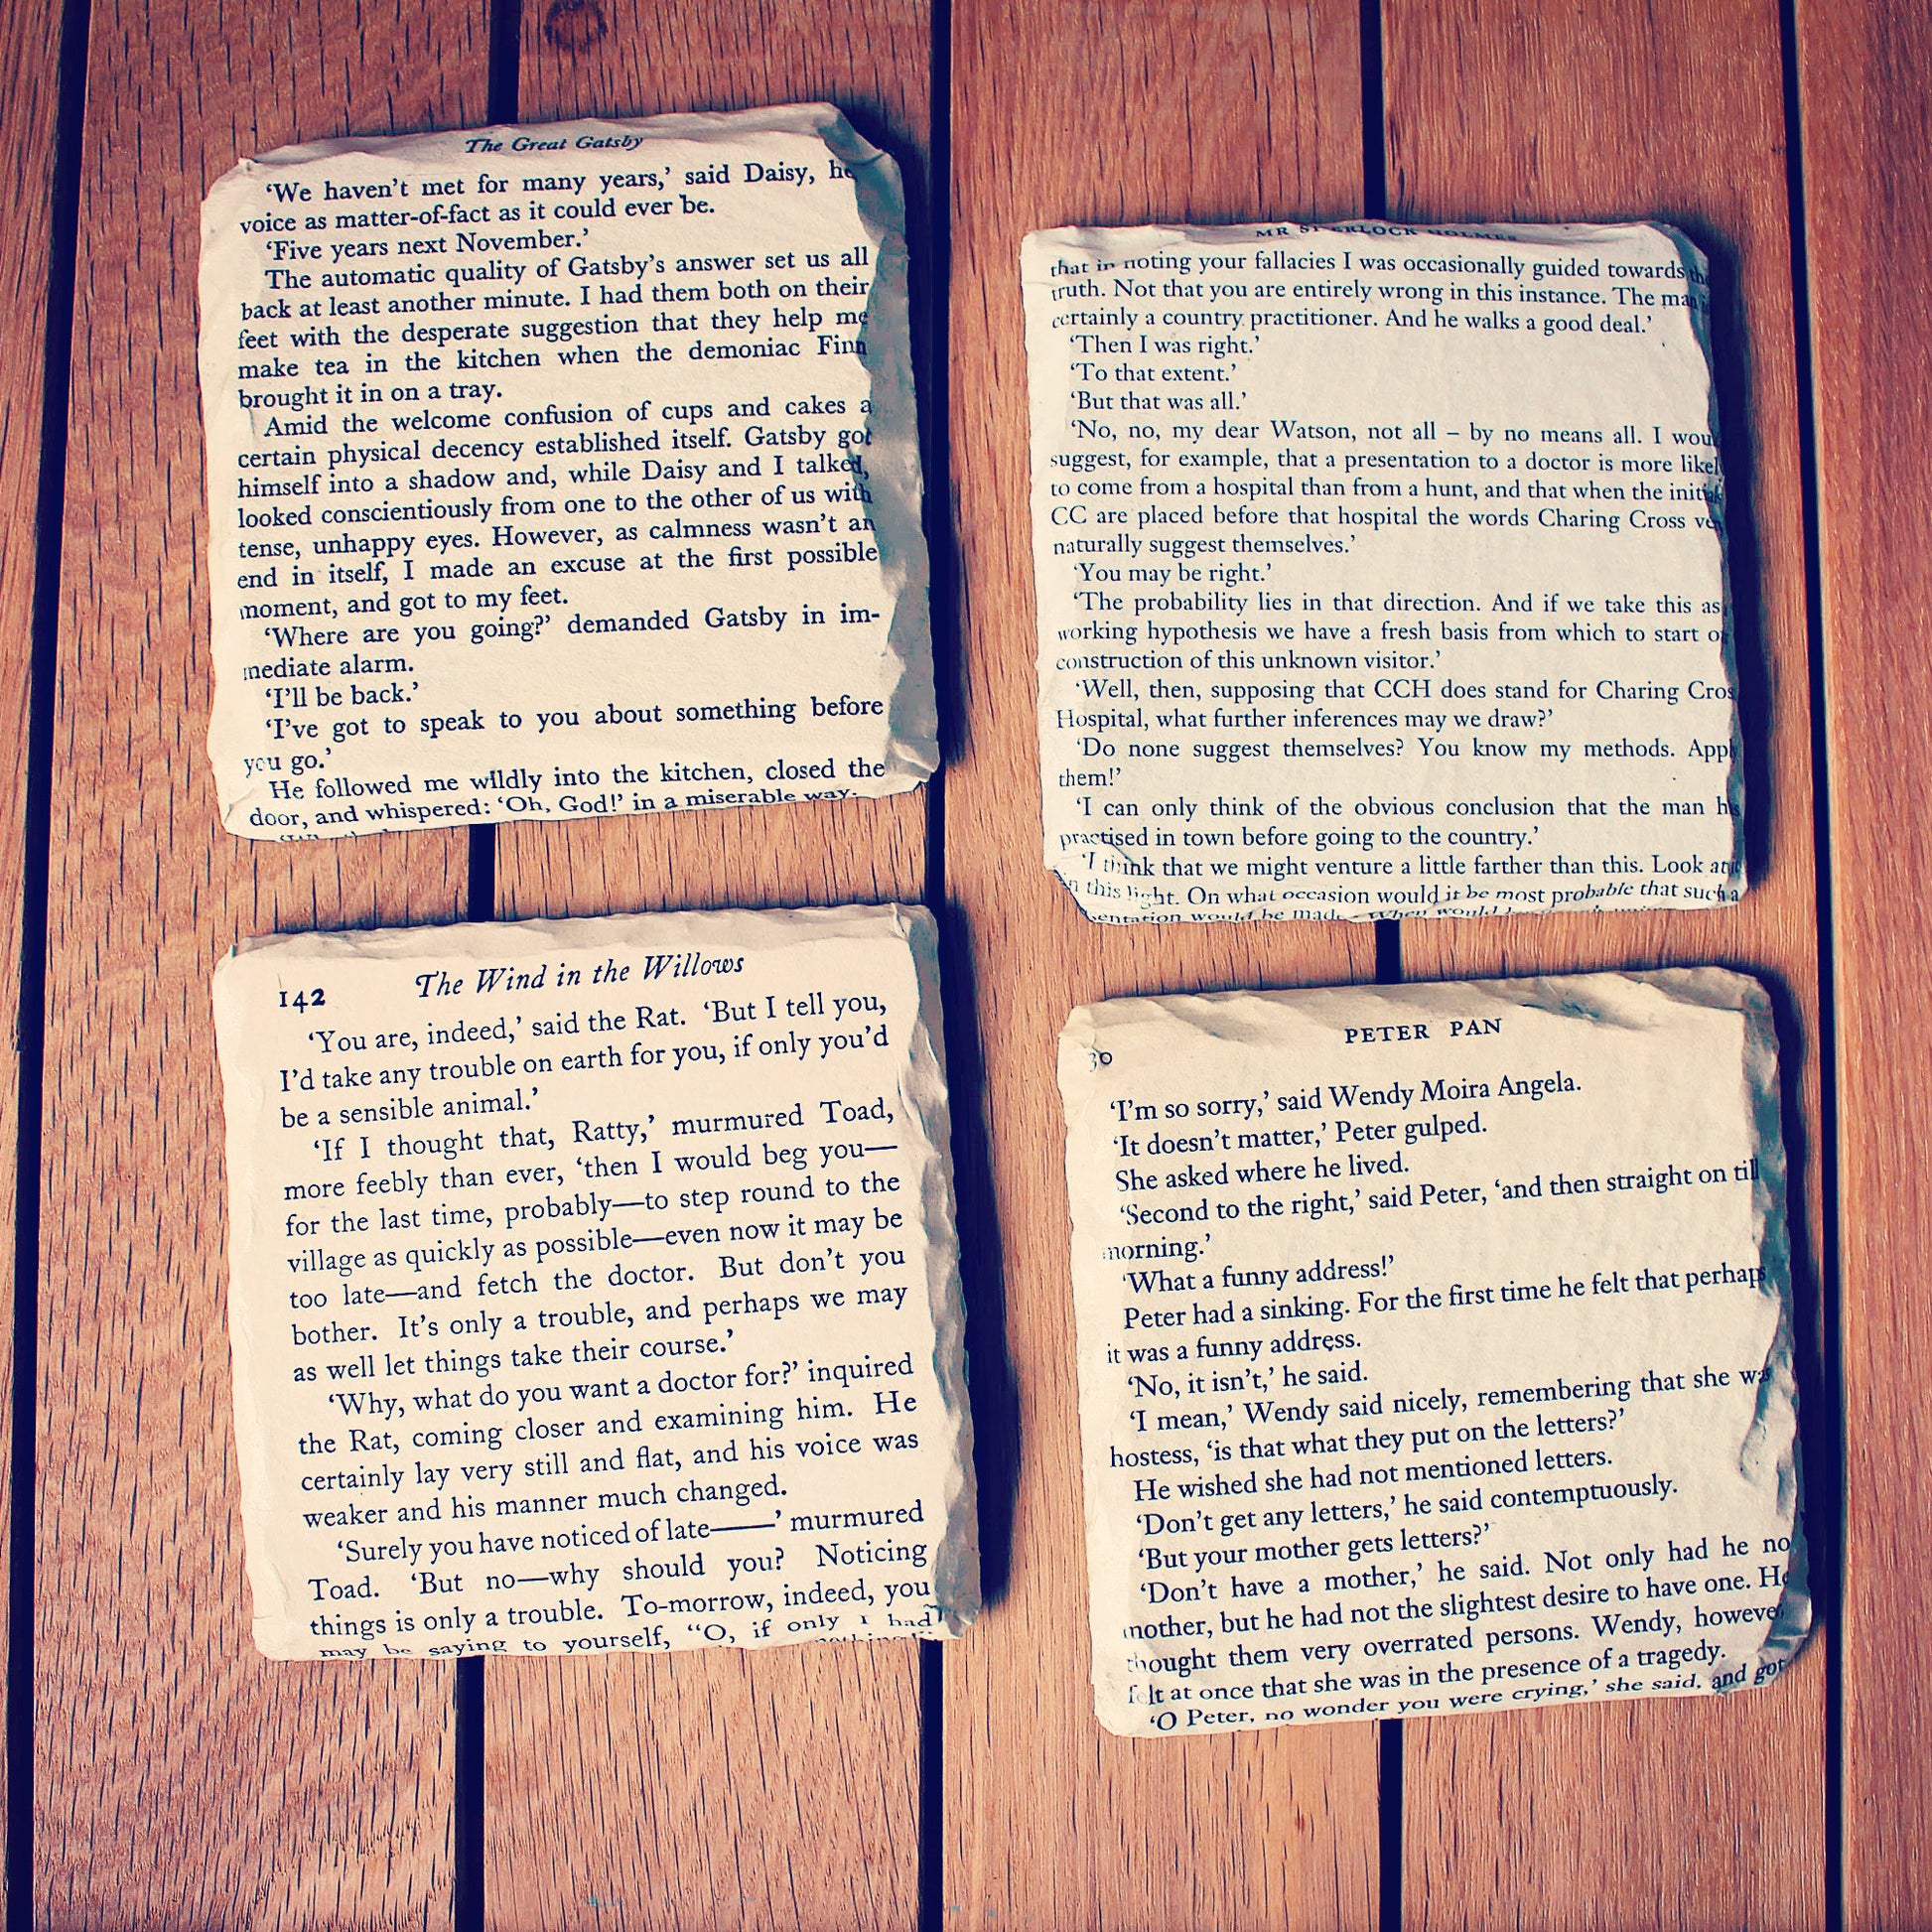 The Great Gatsby
‘We haven’t met for many years,’ said Daisy,
voice as matter-of-fact as it could ever be.
‘Five years next November.’
The automatic quality of Gatsby’s answer set us all
back at least another minute. I had them both on their
feet with the desperate suggestion that they help me
make tea in the kitchen when the demoniac Finn
brought it in on a tray.
Amid the welcome confusion of cups and cakes a
certain physical decency established itself. Gatsby got
himself into a shadow and, while Daisy and I talked,
looked conscientiously from one to the other of us with
tense, unhappy eyes. However, as calmness wasn’t an
end in itself, I made an excuse at the first possible
moment, and got to my feet.
‘Where are you going?’ demanded Gatsby in im-
mediate alarm.
‘I’ll be back.’
‘I’ve got to speak to you about something before
you go.’
He followed me wildly into the kitchen, closed the
door, and whispered: ‘Oh, God!’ in a miserable way.
MR SHERLOCK HOLMES
that in noting your fallacies I was occasionally guided towards the
truth. Not that you are entirely wrong in this instance. The man
certainly a country practitioner. And he walks a good deal.’
‘Then I was right.’
‘To that extent.’
‘But that was all.’
‘No, no, my dear Watson, not all – by no means all. I
suggest, for example, that a presentation to a doctor is more
to come from a hospital than from a hunt, and that when the
CC are placed before that hospital the words Charing Cross
naturally suggest themselves.’
‘You may be right.’
‘The probability lies in that direction. And if we take this as
working hypothesis we have a fresh basis from which to start
construction of this unknown visitor.’
‘Well, then, supposing that CCH does stand for Charing
Hospital, what further inferences may we draw?’
‘Do none suggest themselves? You know my methods.
them!’
‘I can only think of the obvious conclusion that the man
practised in town before going to the country.’
‘I think that we might venture a little farther than this. Look
in this light. On what occasion would it be most probable that such a
would be made
142 The Wind in the Willows
‘You are, indeed,’ said the Rat. ‘But I tell you,
I’d take any trouble on earth for you, if only you’d
be a sensible animal.’
‘If I thought that, Ratty,’ murmured Toad,
more feebly than ever, ‘then I would beg you—
for the last time, probably—to step round to the
village as quickly as possible—even now it may be
too late—and fetch the doctor. But don’t you
bother. It’s only a trouble, and perhaps we may
as well let things take their course.’
‘Why, what do you want a doctor for?’ inquired
the Rat, coming closer and examining him. He
certainly lay very still and flat, and his voice was
weaker and his manner much changed.
‘Surely you have noticed of late——’ murmured
Toad. ‘But no—why should you? Noticing
things is only a trouble. To-morrow, indeed, you
may be saying to yourself, “O, if only I had
PETER PAN
30
‘I’m so sorry,’ said Wendy Moira Angela.
‘It doesn’t matter,’ Peter gulped.
She asked where he lived.
‘Second to the right,’ said Peter, ‘and then straight on till
morning.’
‘What a funny address!’
Peter had a sinking. For the first time he felt that perhaps
it was a funny address.
‘No, it isn’t,’ he said.
‘I mean,’ Wendy said nicely, remembering that she was
hostess, ‘is that what they put on the letters?’
He wished she had not mentioned letters.
‘Don’t get any letters,’ he said contemptuously.
‘But your mother gets letters?’
‘Don’t have a mother,’ he said. Not only had he no
mother, but he had not the slightest desire to have one. He
thought them very overrated persons. Wendy, however
felt at once that she was in the presence of a tragedy.
‘O Peter, no wonder you were crying,’ she said, and got